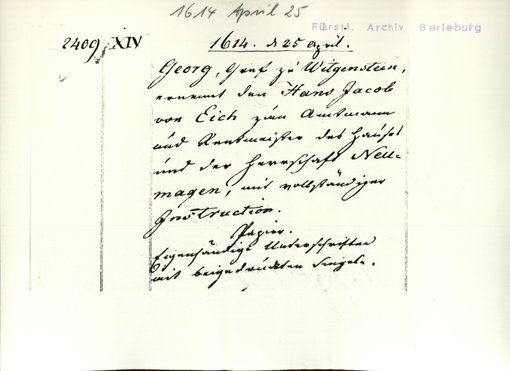 1614 April 25
Fürstl. Archiv Berleburg
2409. XIV
1614. d 25 April.
Georg, Graf zu Witgenstein,
ernennt den Hans Jacob
von Eich zum Amtmann
und Rentmeister des Hauses
und der Herrschaft Neu-
magen, mit vollständiger
Instruction.
Papier.
Eigenhändige Unterschriften
mit beigedrückten Siegeln.